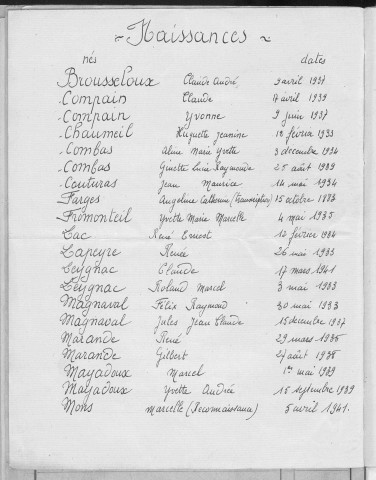 ~ Naissances ~
nés dates
Brousseloux Claude André 9 avril 1937
Compain Claude 7 avril 1939
Compain Yvonne 9 juin 1937
Chaumeil Huguette Jeanine 18 février 1933
Combas Aline Marie Yvette 3 decembre 1934
Combas Ginette Lucie Raymonde 25 août 1939
Couturas Jean Maurice 14 mai 1934
Farges Angeline Catherine (Transcription) 15 octobre
Fromonteil Yvette Marie Marcelle 4 mai 1935
Lac René Ernest 12 février
Lapeyre Renée 26 mai 1933
Leygnac Claude 17 mars 1941
Leygnac Roland Marcel 3 mai 1933
Magnaval Félix Raymond 30 mai 1933
Magnaval Jules Jean Claude 15 decembre 1937
Marande René 29 mars 1935
Marande Gilbert 27 août 1935
Mayadoux Marcel 1er mai 1939
Mayadoux Yvette Andrée 15 septembre 1939
Mons Marcelle (Reconnaissance) 5 avril 1941.